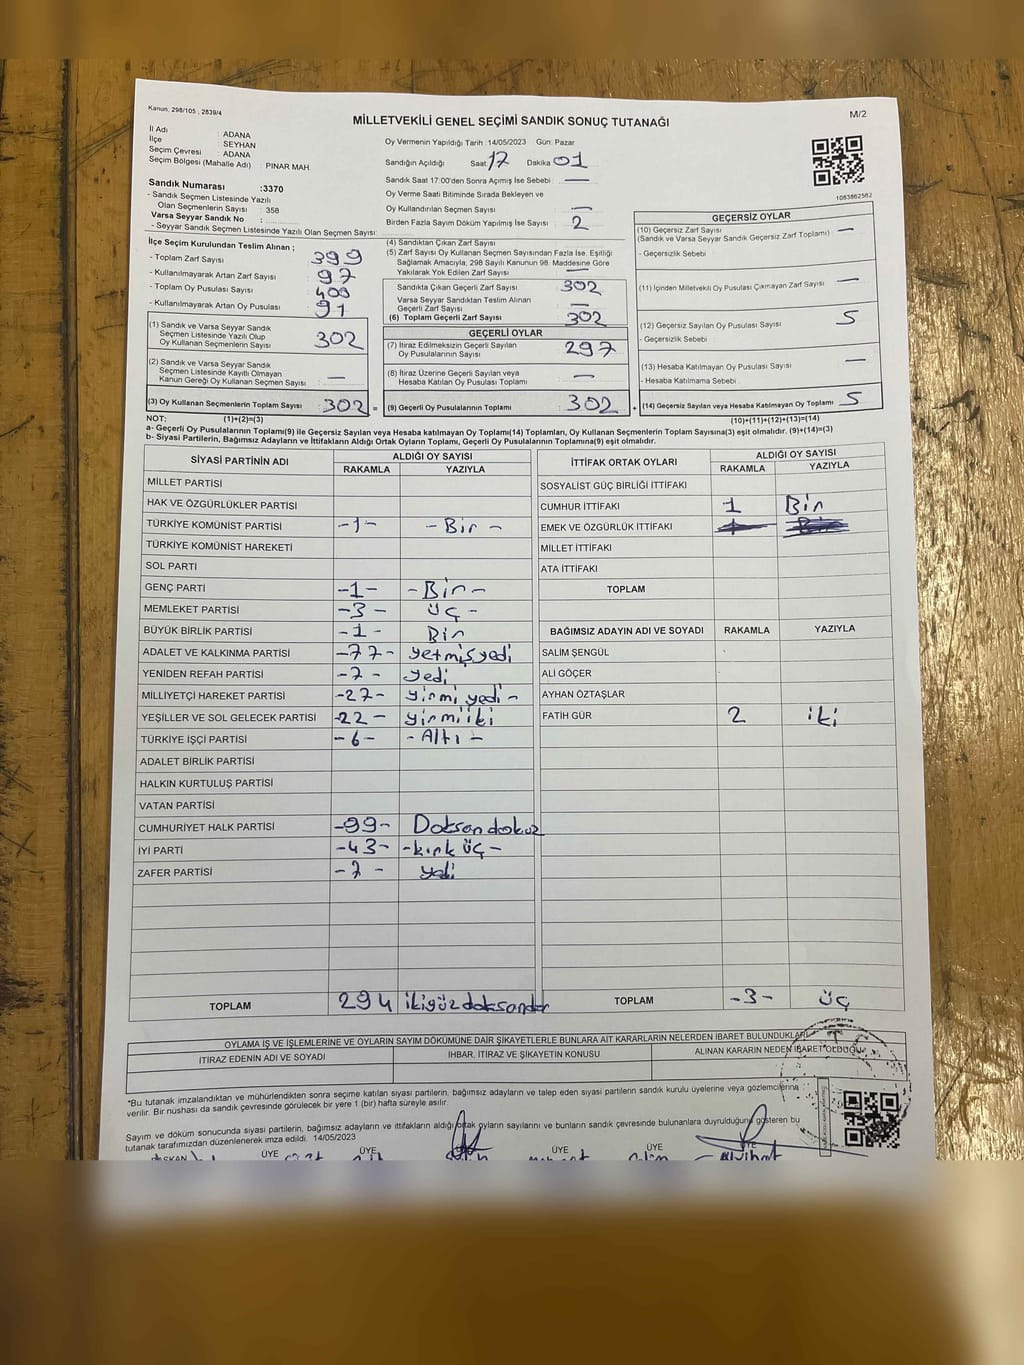 Kanun, 298/105 , 2839/4
MİLLETVEKİLİ GENEL SEÇİMİ SANDIK SONUÇ TUTANAĞI
M/2
İl Adı : ADANA
İlçe : SEYHAN
Seçim Çevresi : ADANA
Seçim Bölgesi (Mahalle Adı) : PINAR MAH
Sandık Numarası :3370
- Sandık Seçmen Listesinde Yazılı
Olan Seçmenlerin Sayısı : 358
Varsa Seyyar Sandık No :
- Seyyar Sandık Seçmen Listesinde Yazılı Olan Seçmen Sayısı:
Oy Vermenin Yapıldığı Tarih :14/05/2023 Gün: Pazar
Sandığın Açıldığı Saat 17 Dakika 01
Sandık Saat 17:00'den Sonra Açımış İse Sebebi : —
Oy Verme Saati Bitiminde Sırada Bekleyen ve
Oy Kullandırılan Seçmen Sayısı : —
Birden Fazla Sayım Döküm Yapılmış İse Sayısı : 2
1083862562
İlçe Seçim Kurulundan Teslim Alınan ;
- Toplam Zarf Sayısı : 399
- Kullanılmayarak Artan Zarf Sayısı : 97
- Toplam Oy Pusulası Sayısı : 400
- Kullanılmayarak Artan Oy Pusulası : 91
(1) Sandık ve Varsa Seyyar Sandık
Seçmen Listesinde Yazılı Olup
Oy Kullanan Seçmenlerin Sayısı : 302
(2) Sandık ve Varsa Seyyar Sandık
Seçmen Listesinde Kayıtlı Olmayan
Kanun Gereği Oy Kullanan Seçmen Sayısı : —
(3) Oy Kullanan Seçmenlerin Toplam Sayısı : 302 =
(4) Sandıktan Çıkan Zarf Sayısı
(5) Zarf Sayısı Oy Kullanan Seçmen Sayısından Fazla İse, Eşitliği
Sağlamak Amacıyla, 298 Sayılı Kanunun 98. Maddesine Göre
Yakılarak Yok Edilen Zarf Sayısı : —
Sandıkta Çıkan Geçerli Zarf Sayısı : 302
Varsa Seyyar Sandıktan Teslim Alınan
Geçerli Zarf Sayısı : —
(6) Toplam Geçerli Zarf Sayısı : 302
GEÇERLİ OYLAR
(7) İtiraz Edilmeksizin Geçerli Sayılan
Oy Pusulalarının Sayısı : 297
(8) İtiraz Üzerine Geçerli Sayılan veya
Hesaba Katılan Oy Pusulası Toplamı : —
(9) Geçerli Oy Pusulalarının Toplamı : 302 +
GEÇERSİZ OYLAR
(10) Geçersiz Zarf Sayısı : —
(Sandık ve Varsa Seyyar Sandık Geçersiz Zarf Toplamı)
- Geçersizlik Sebebi
(11) İçinden Milletvekili Oy Pusulası Çıkmayan Zarf Sayısı : —
(12) Geçersiz Sayılan Oy Pusulası Sayısı : 5
- Geçersizlik Sebebi :
(13) Hesaba Katılmayan Oy Pusulası Sayısı : —
- Hesaba Katılmama Sebebi :
(14) Geçersiz Sayılan veya Hesaba Katılmayan Oy Toplamı : 5
NOT: (1)+(2)=(3) (10)+(11)+(12)+(13)=(14)
a- Geçerli Oy Pusulalarının Toplamı(9) ile Geçersiz Sayılan veya Hesaba katılmayan Oy Toplamı(14) Toplamları, Oy Kullanan Seçmenlerin Toplam Sayısına(3) eşit olmalıdır. (9)+(14)=(3)
b- Siyasi Partilerin, Bağımsız Adayların ve İttifakların Aldığı Ortak Oyların Toplamı, Geçerli Oy Pusulalarının Toplamına(9) eşit olmalıdır.
SİYASİ PARTİNİN ADI ALDIĞI OY SAYISI
RAKAMLA YAZIYLA
MİLLET PARTİSİ
HAK VE ÖZGÜRLÜKLER PARTİSİ
TÜRKİYE KOMÜNİST PARTİSİ -1- - Bir -
TÜRKİYE KOMÜNİST HAREKETİ
SOL PARTİ
GENÇ PARTİ -1- - Bir -
MEMLEKET PARTİSİ -3- üç -
BÜYÜK BİRLİK PARTİSİ -1- Bir
ADALET VE KALKINMA PARTİSİ -77- yetmişyedi
YENİDEN REFAH PARTİSİ -7- yedi
MİLLİYETÇİ HAREKET PARTİSİ -27- yirmi yedi -
YEŞİLLER VE SOL GELECEK PARTİSİ -22- yirmiiki
TÜRKİYE İŞÇİ PARTİSİ -6- - Altı -
ADALET BİRLİK PARTİSİ
HALKIN KURTULUŞ PARTİSİ
VATAN PARTİSİ
CUMHURİYET HALK PARTİSİ -99- Doksandokuz
İYİ PARTİ -43- -kırk üç -
ZAFER PARTİSİ -7- yedi
TOPLAM 294
İTTİFAK ORTAK OYLARI ALDIĞI OY SAYISI
RAKAMLA YAZIYLA
SOSYALİST GÜÇ BİRLİĞİ İTTİFAKI
CUMHUR İTTİFAKI 1 Bir
EMEK VE ÖZGÜRLÜK İTTİFAKI
MİLLET İTTİFAKI
ATA İTTİFAKI
TOPLAM
BAĞIMSIZ ADAYIN ADI VE SOYADI RAKAMLA YAZIYLA
SALİM ŞENGÜL
ALİ GÖÇER
AYHAN ÖZTAŞLAR
FATİH GÜR 2 iki
TOPLAM -3- üç
OYLAMA İŞ VE İŞLEMLERİNE VE OYLARIN SAYIM DÖKÜMÜNE DAİR ŞİKAYETLERLE BUNLARA AİT KARARLARIN NELERDEN İBARET BULUNDUKLARI
İTİRAZ EDENİN ADI VE SOYADI İHBAR, İTİRAZ VE ŞİKAYETİN KONUSU ALINAN KARARIN NEDEN İBARET OLDUĞU
*Bu tutanak imzalandıktan ve mühürlendikten sonra seçime katılan siyasi partilerin, bağımsız adayların ve talep eden siyasi partilerin sandık kurulu üyelerine veya gözlemcilerine
verilir. Bir nüshası da sandık çevresinde görülecek bir yere 1 (bir) hafta süreyle asılır.
Sayım ve döküm sonucunda siyasi partilerin, bağımsız adayların ve ittifakların aldığı ortak oyların sayılarını ve bunların sandık çevresinde bulunanlara duyrulduğunu gösteren bu
tutanak tarafımızdan düzenlenerek imza edildi. 14/05/2023
BAŞKAN ÜYE ÜYE ÜYE ÜYE ÜYE